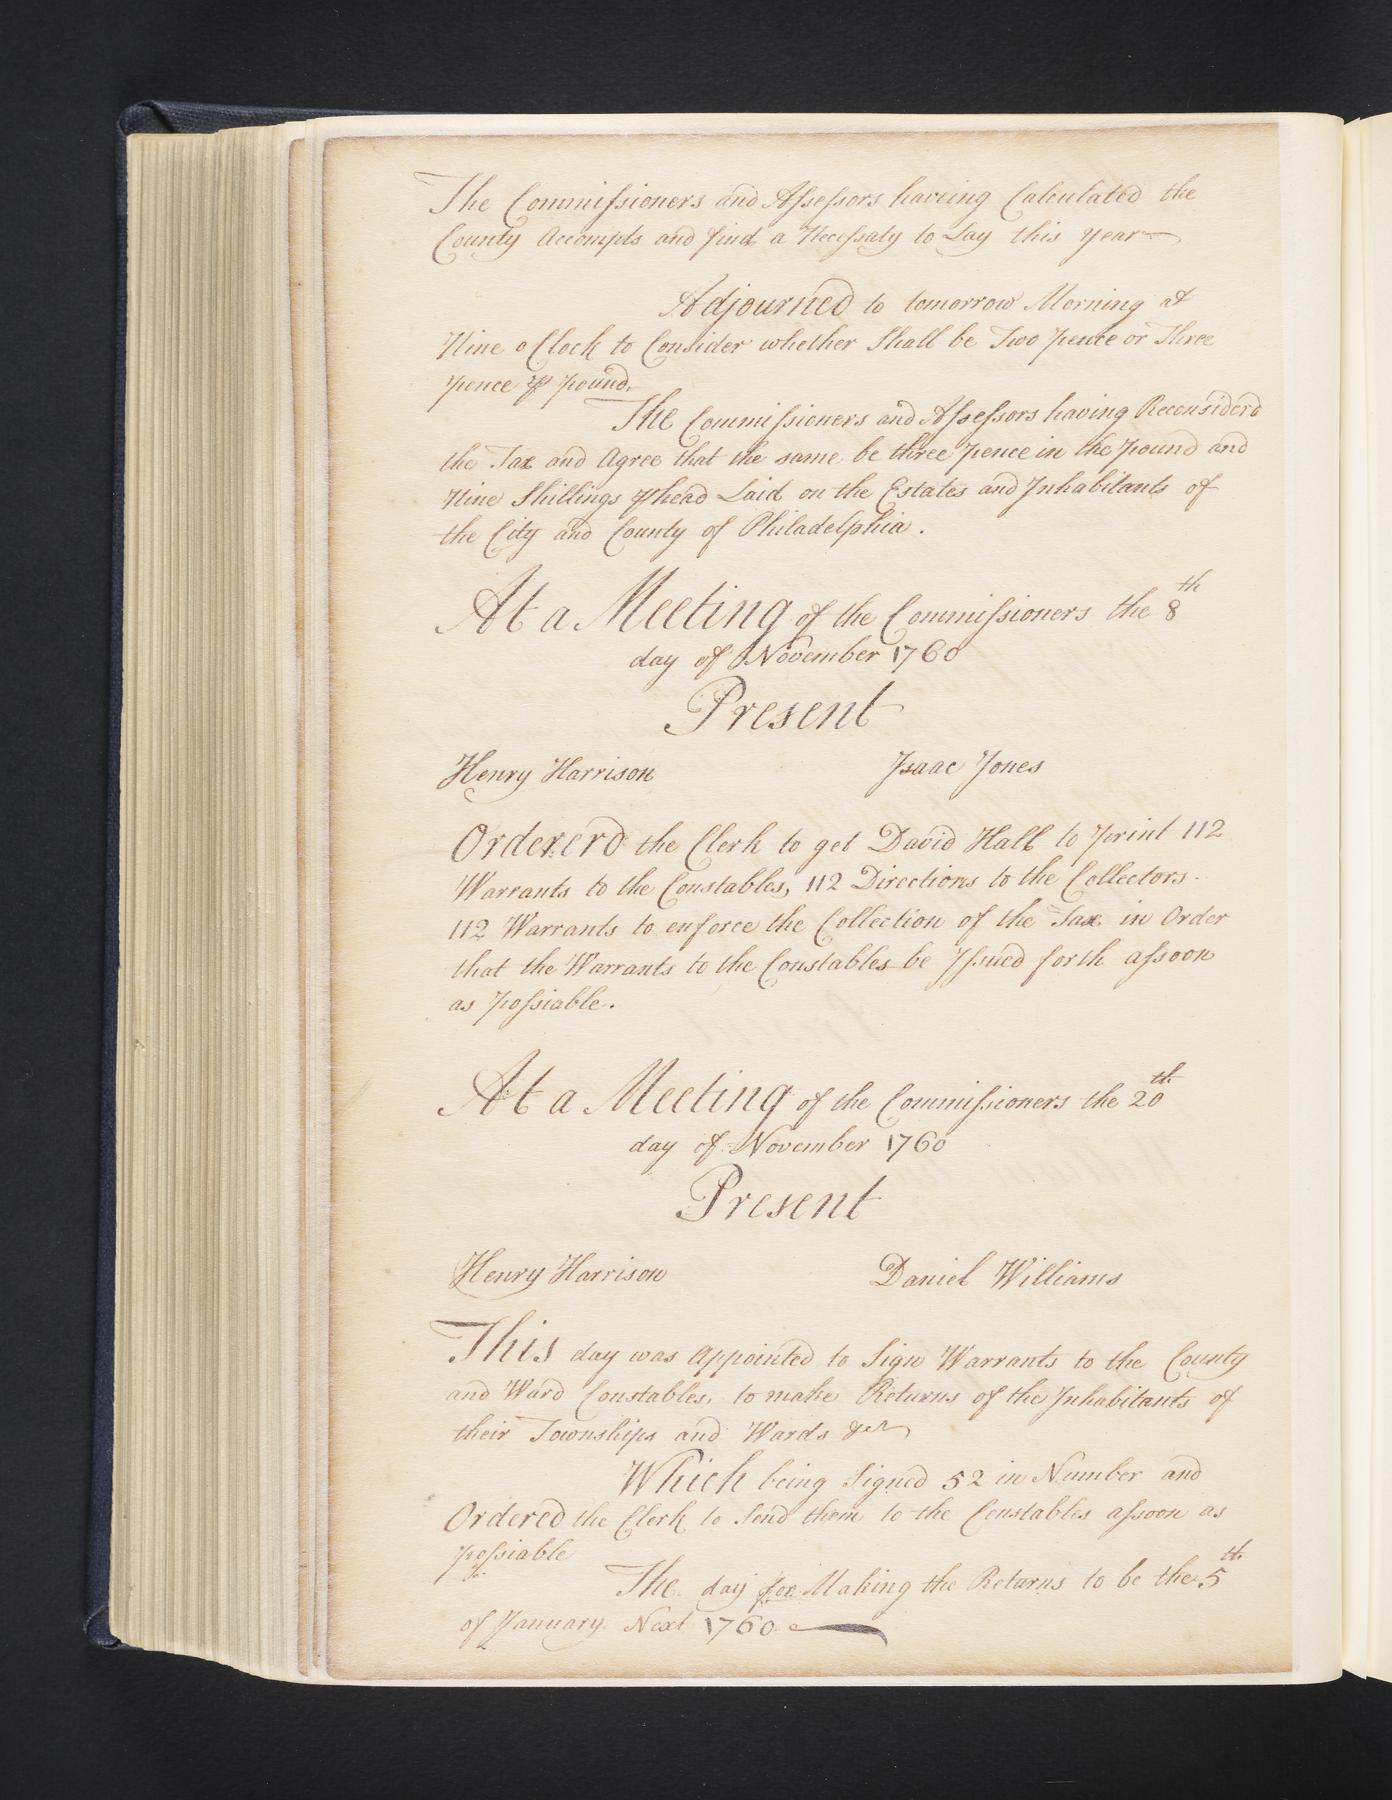 The Commissioners and Assessors haveing Calculated the
County Accompts and find a Necessaty to Lay this year
Adjourned to tomorrow Morning at
Nine o Clock to Consider whether Shall be Two pence or Three
pence ⅌ pound.
The Commissioners and Assessors having Reconsiderd
the Tax and Agree that the same be three pence in the pound and
Nine Shillings ⅌ head Laid on the Estates and Inhabitants of
the City and County of Philadelphia.
At a Meeting of the Commissioners the 8th
day of November 1760
Present
Henry Harrison Isaac Jones
Ordererd the Clerk to get David Hall to print 112
Warrants to the Constables, 112 Directions to the Collectors
112 Warrants to enforce the Collection of the Tax in Order
that the Warrants to the Constables be Issued forth assoon
as possiable.
At a Meeting of the Commissioners the 20th
day of November 1760
Present
Henry Harrison Daniel Williams
This day was Appointed to Sign Warrants to the County
and Ward Constables, to make Returns of the Inhabitants of
their Townships and Wards &c
Which being Signed 52 in Number and
Ordered the Clerk to Send them to the Constables assoon as
possiable
The day for Making the Returns to be the 5th
of January Next 1760